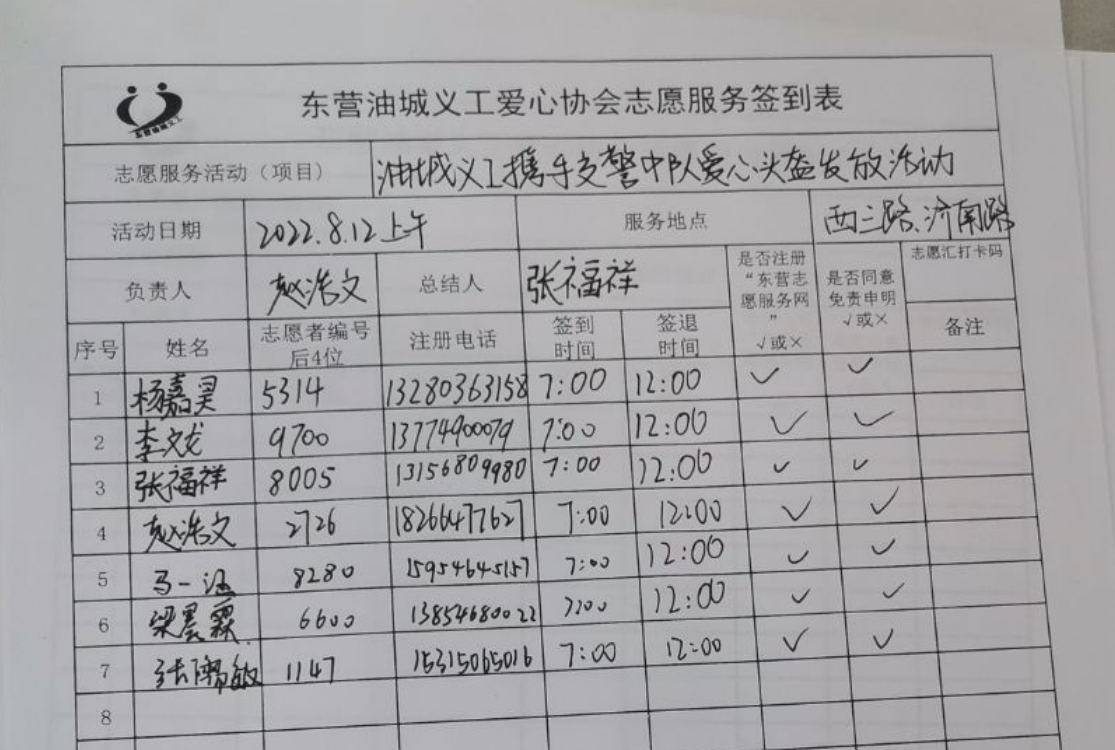 东营油城义工
东营油城义工爱心协会志愿服务签到表
志愿服务活动（项目） 油城义工携手交警中队爱心头盔发放活动
活动日期 2022.8.12上午 服务地点 西三路、济南路
负责人 赵浩文 总结人 张福祥 是否注册“东营志愿服务网” √或× 是否同意免责申明 √或× 志愿汇打卡码
序号 姓名 志愿者编号后4位 注册电话 签到时间 签退时间 备注
1 杨嘉昊 5314 13280363158 7:00 12:00 ✓ ✓
2 李文龙 9700 13774900079 7:00 12:00 ✓ ✓
3 张福祥 8005 13156809980 7:00 12:00 ✓ ✓
4 赵浩文 2726 18266477627 7:00 12:00 ✓ ✓
5 马一涵 8280 15954645157 7:00 12:00 ✓ ✓
6 梁晨霖 6600 13854680022 7:00 12:00 ✓ ✓
7 张 敏 1147 15315065016 7:00 12:00 ✓ ✓
8